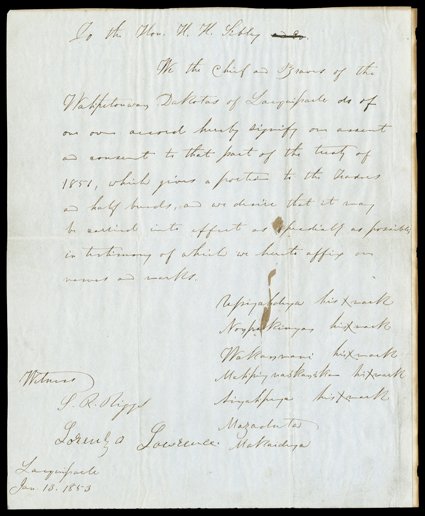 To the Hon. H. H. Sibley
We the Chief and Braves of the
Wahpetonwan Dakotas of Lacquiparle do of
our own accord hereby signify our assent
and consent to that part of the treaty of
1851, which gives a portion to the traders
and half breeds, and we desire that it may
be carried into effect as speedily as possible
in testimony of which we hereto affix our
names and marks.
Upiyahdeya his X mark
his X mark
Wakanmani his X mark
his X mark
his X mark
Mazaduta
Makaideya
Witness
S. R. Riggs
Lorenzo Lawrence
Lacquiparle
Jan. 13. 1853